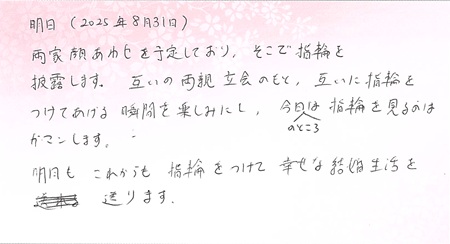 明日（2025年8月31日）
両家顔あわせを予定しており、そこで指輪を
披露します。互いの両親立会のもと、互いに指輪を
つけてあげる瞬間を楽しみにし、今日は指輪を見るのは
のところ
ガマンします。
明日も これからも 指輪をつけて 幸せな結婚生活を
送ります。